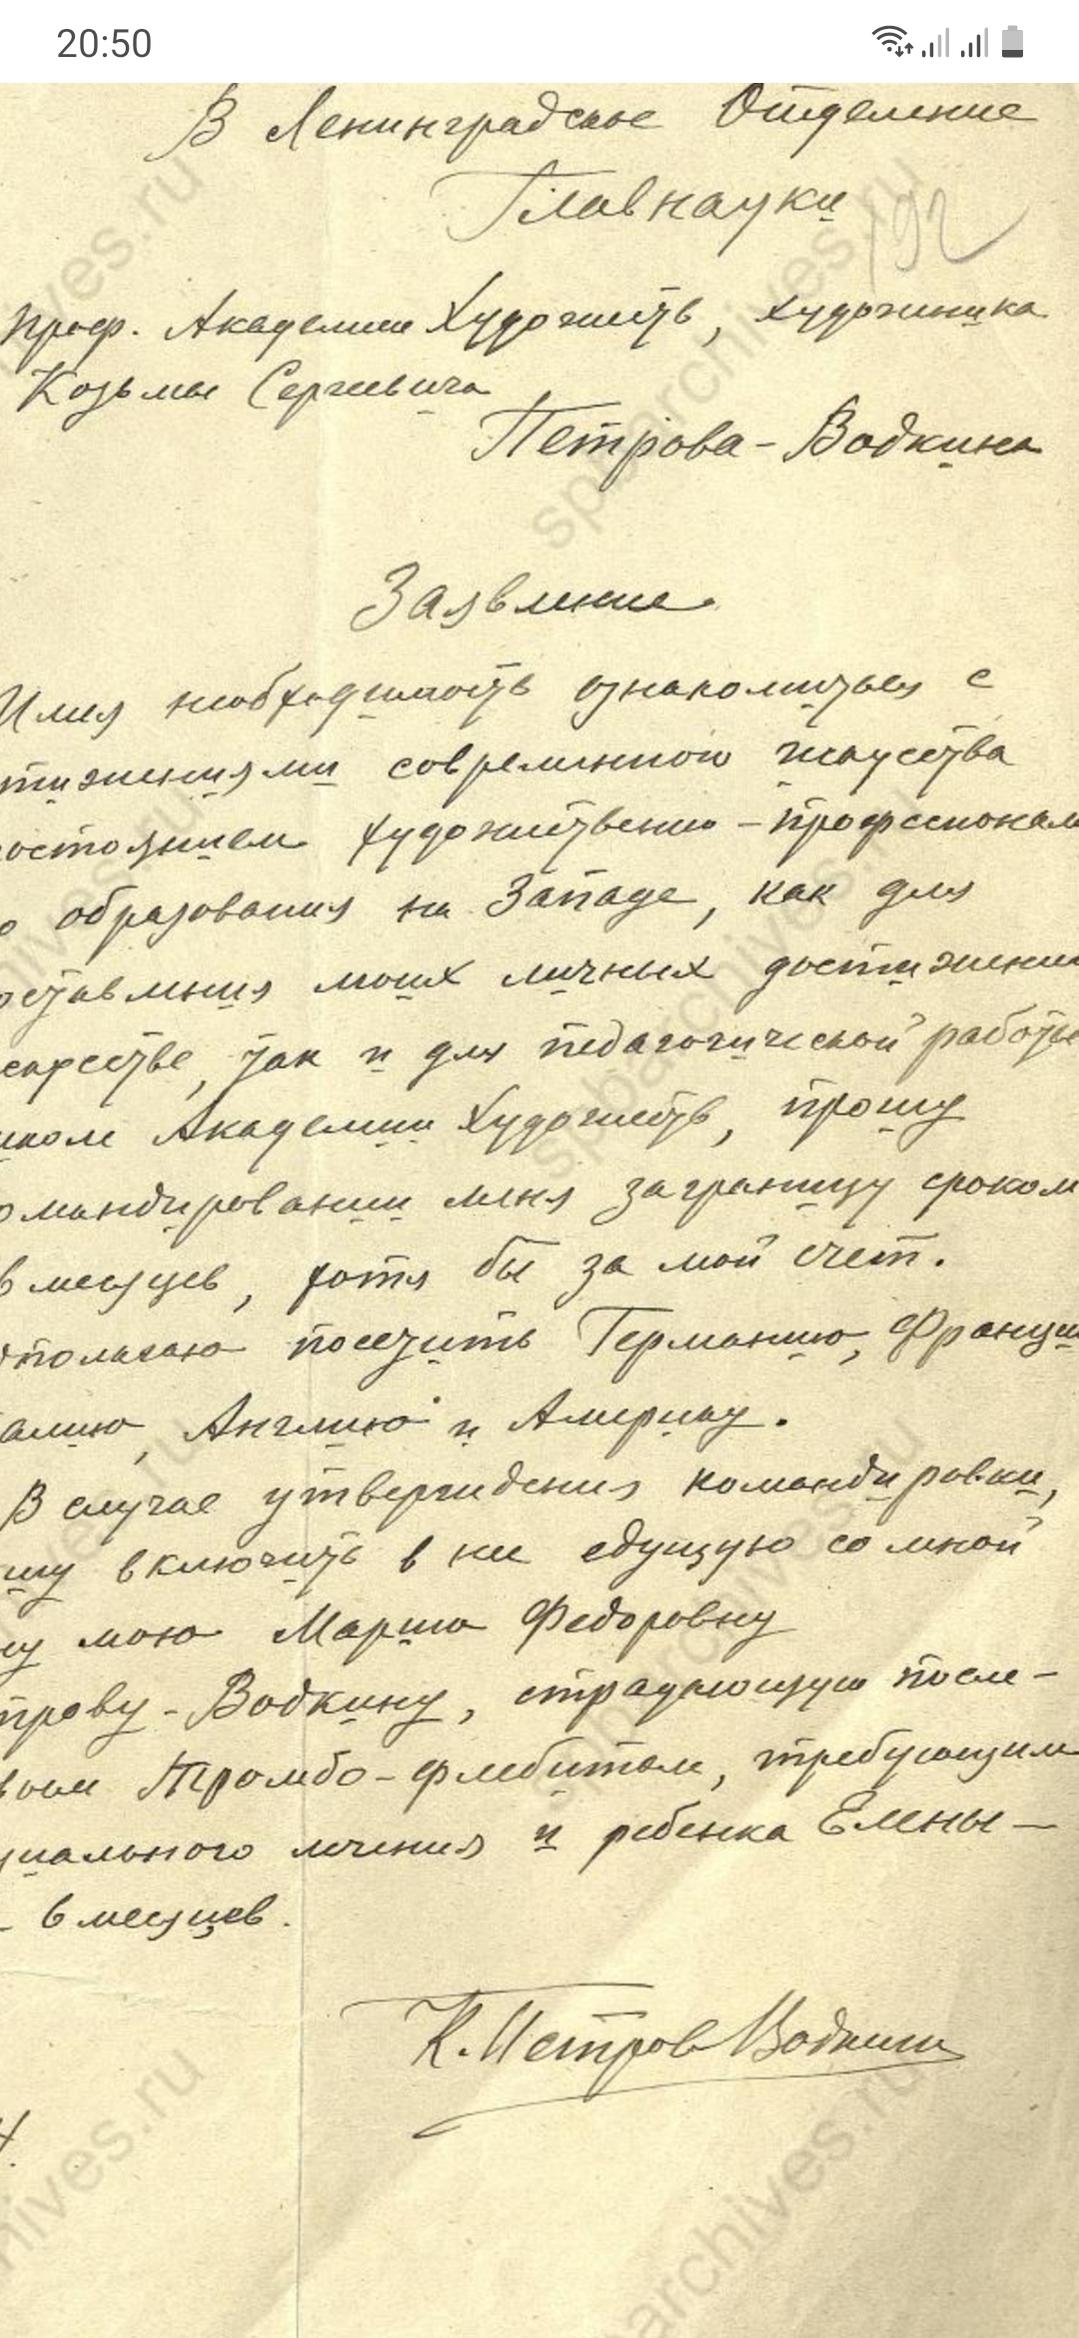 20:50
В Ленинградское Отделение
Главнауки
192
Проф. Академии Художеств, художника
Козьмы Сергеевича
Петрова-Водкина
Заявление
Имея необходимость ознакомиться с
тижениями современного искусства
остоянием художественно-профессионал
о образования на Западе, как для
оставления моих личных достижени
скусстве, так и для педагогической работы
школе Академии Художеств, прошу
омандировании меня заграницу сроком
6 месяцев, хотя бы за мой счет.
дполагаю посетить Германию, Франци
алию, Англию и Америку.
В случае утверждения командировки,
шу включить в нее едущую со мной
ну мою Марию Федоровну
трову-Водкину, страдающую после-
вым Тромбо-флебитом, требующим
циального лечения и ребенка Елены—
6 месяцев.
К. Петров Водкин
spbarchives.ru